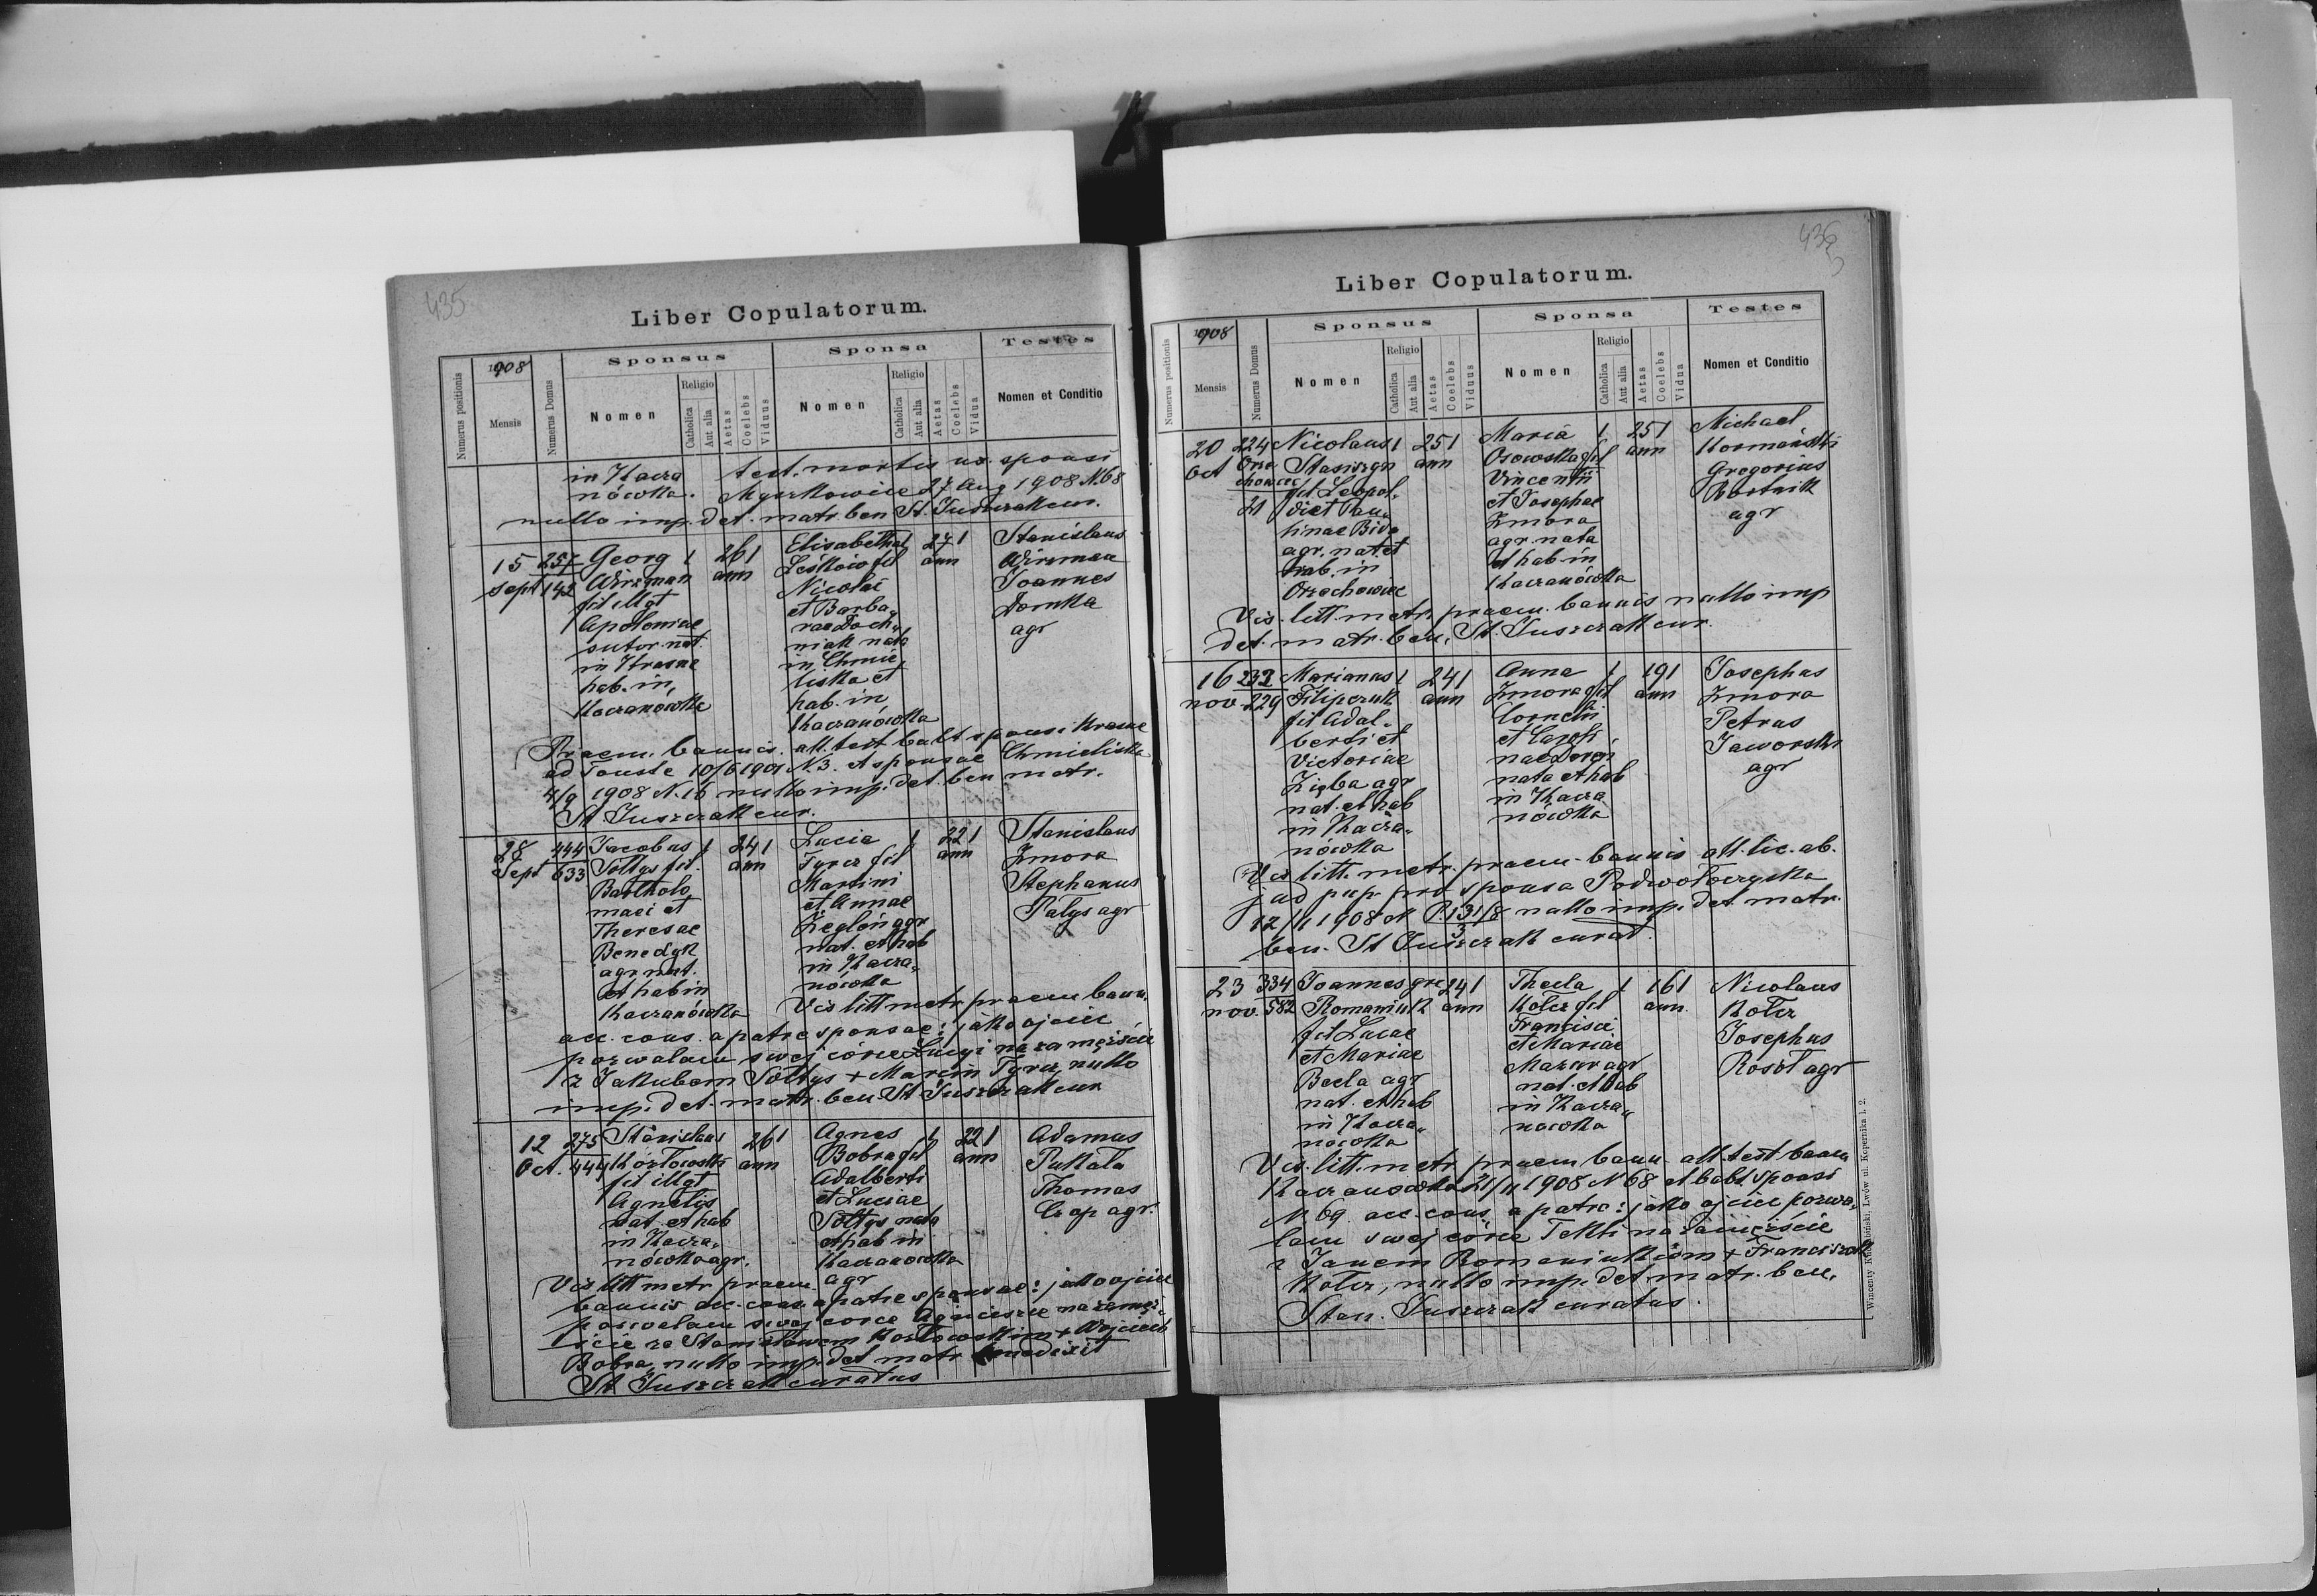 435
Liber Copulatorum.
Numerus positionis
1908
Mensis
Numerus Domus
Sponsus
Nomen
Religio
Catholica
Aut alia
Aetas
Coelebs
Viduus
Sponsa
Nomen
Religio
Catholica
Aut alia
Aetas
Coelebs
Vidua
Testes
Nomen et Conditio
in Kacza test. mortis ux. sponsi
nówka. 27 Aug 1908 N. 68
nullo imp. det. matr. ben St. Juszczak cur.
15 257 Georg 1 26 1 Elisabetha 1 27 1 Stanislaus
Sept 142 Wirzman ann Leśków fil ann Wirzman
fil illgt Nicolai Joannes
Apoloniae et Barba„ Domka
sutor. nat. rae Doch„ agr
in Krasne niak nata
hab. in in Chmie
Kaczanówka liska et
hab. in
Kaczanówka
Praem. bannis. all. test bapt sponsi Krasne
ad Touste 10/6 1901 N. 3. et sponsae Chmieliska
4/9 1908 N. 16 nullo imp. det. ben matr.
St Juszczak cur.
28 444 Jacobus 1 24 1 Lucia 1 22 1 Stanislaus
Sept 633 Sołtys fil. ann Tyrcz fil ann Zmora
Bartholo Martini Stephanus
maei et et Annae Pałys agr
Theresae Żegleń agr
Benedyk nat. et hab
agr. nat. in Kacza„
et hab in nówka
Kaczanówka Vis litt metr praem bann.
acc. cons. a patre sponsae: jako ojciec
pozwalam swej córce Łucyi na zamęźście
z Jakubem Sołtys + Marcin Tyrcz, nullo
imp. det. matr. ben St Juszczak cur
12 275 Stanislaus 26 1 Agnes 1 22 1 Adamus
Oct. 444 Kozłowski ann Bobra fil ann Pukała
fil illgt Adalberti Thomas
Agnetis et Luciae Czop agr.
nat. et hab Sołtys nata
in Kacza„ et hab in
nówka agr. Kaczanówka
Vis litt metr praem. agr
bannis acc. cons. a patre sponsae: jako ojciec
pozwalam swej córce Agnieszce na zamęź„
ście za Stanisławem Kozłowskim + Wojciech
Bobra, nullo imp. det matr benedixit
St Juszczak curatus
436
Liber Copulatorum.
Numerus positionis
1908
Mensis
Numerus Domus
Sponsus
Nomen
Religio
Catholica
Aut alia
Aetas
Coelebs
Viduus
Sponsa
Nomen
Religio
Catholica
Aut alia
Aetas
Coelebs
Vidua
Testes
Nomen et Conditio
20 224 Nicolaus 1 25 1 Maria 1 25 1 Michael
Oct Orze Stasiszyn ann Osowska fil ann Kormański
chowiec fil Leopol„ Vincentii Gregorius
21 di et Pau„ et Josephae Bortnik
linae Zmora agr
agr. nat. et agr. nata
hab. in et hab in
Orzechowiec Kaczanówka
Vis. litt. metr. praem. bannis nullo imp
det. matr. ben. St. Juszczak cur.
16 232 Marianus 1 24 1 Anna 1 19 1 Josephus
nov 229 Filipczuk ann Zmora fil ann Zmora
fil Adal„ Cornelii Petrus
berti et et Caroli Jaworski
Victoriae nae agr
Zięba agr nata et hab
nat. et hab in Kacza
in Kacza„ nówka
nówka
Vis litt. metr. praem. bannis all. lic. ab.
jud pup. pro sponsa Podwołoczyska
12/11 1908 N P. 131/8 nullo imp. det. matr.
ben. St Juszczak curat.
23 334 Joannes gr 24 1 Thecla 1 16 1 Nicolaus
nov. 582 Romaniuk ann Kotcz fil ann. Kotcz
fil Lucae Francisci Josephus
et Mariae et Mariae Rosół agr
Becla agr Mazur agr
nat. et hab nat. et hab
in Kacza„ in Kacza„
nówka nówka
Vis. litt. metr. praem bann all. test bann
Kaczanówka 21/11 1908 N 68 et bapt sponsi
N. 69. acc. cons. a patre: jako ojciec pozwa„
lam swej córce Tekli na zamęźście
z Janem Romaniukiem + Franciszek
Kotcz, nullo imp. det matr. ben.
Stan. Juszczak curatus.